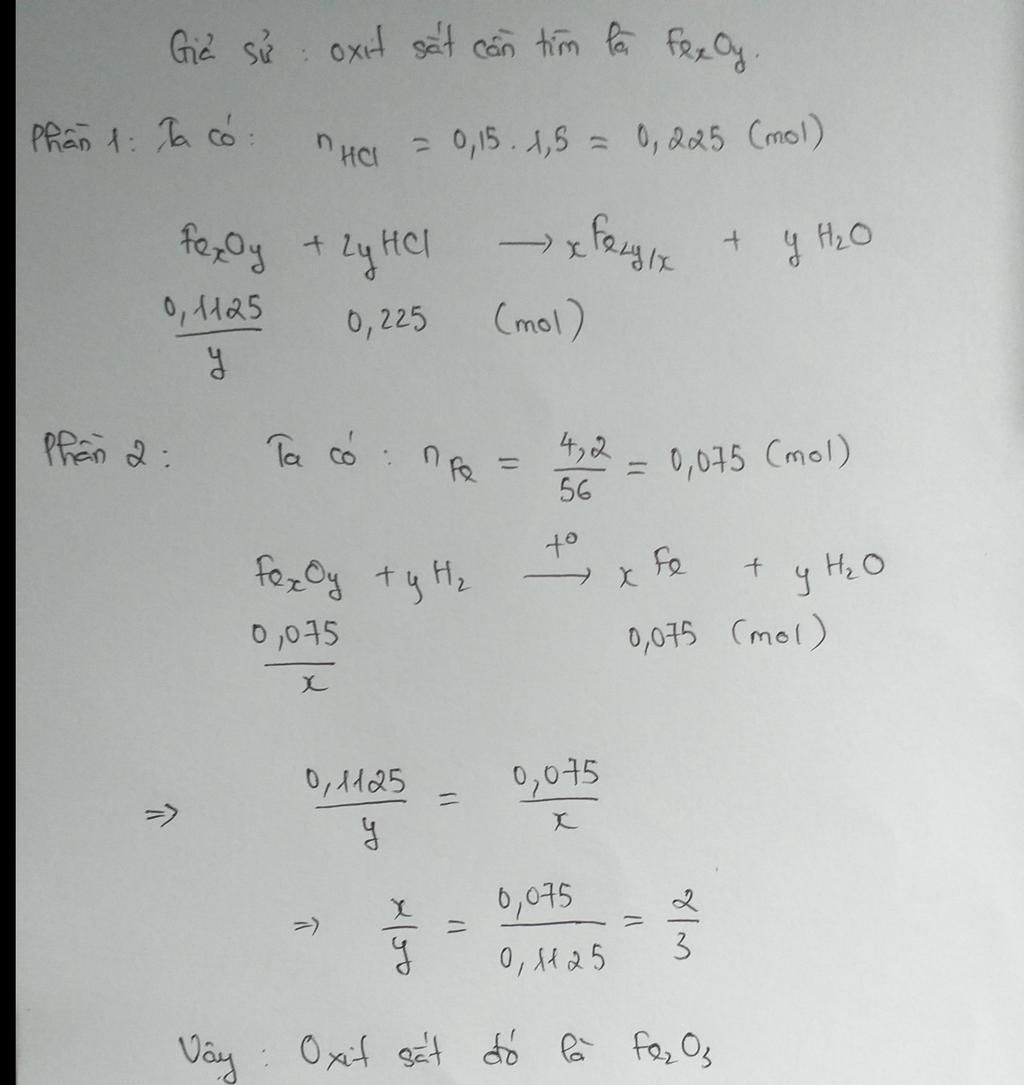 Giả sử : oxit sắt cần tìm là FexOy.
Phần 1: Ta có: nHCl = 0,15. 1,5 = 0,225 (mol)
FexOy + 2yHCl → xFe2y/x + yH2O
0,1125/y 0,225 (mol)
Phần 2: Ta có: nFe = 4,2/56 = 0,075 (mol)
FexOy + yH2 →(t°) xFe + yH2O
0,075/x 0,075 (mol)
=> 0,1125/y = 0,075/x
=> x/y = 0,075/0,1125 = 2/3
Vậy : Oxit sắt đó là Fe2O3